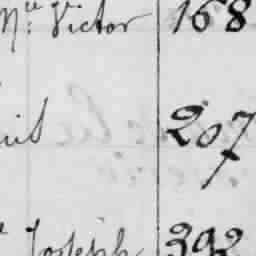 Victor 168
207
Joseph 392